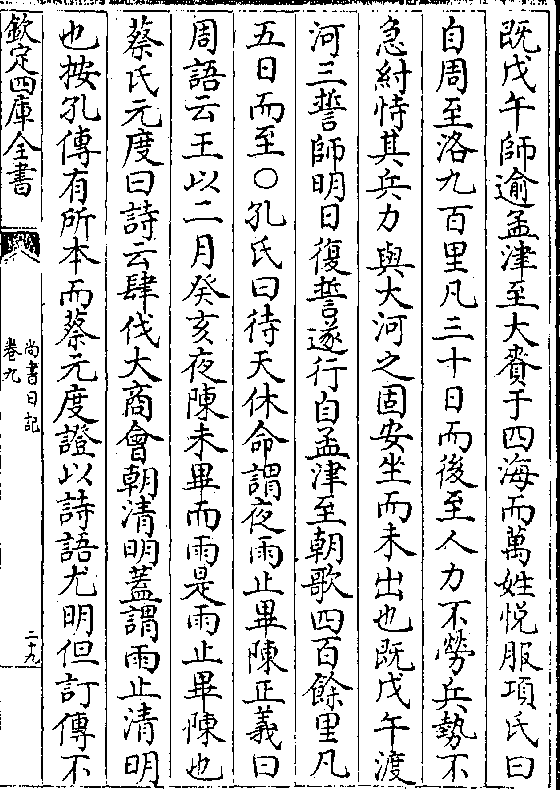 既戊午師逾孟津至大賚于四海而萬姓悦服項氏曰
自周至洛九百里凡三十日而後至人力不勞兵勢不
急紂恃其兵力與大河之固安坐而未出也既戊午渡
河三誓師明日復誓遂行自孟津至朝歌四百餘里凡
五日而至○孔氏曰待天休命謂夜雨止畢陳正義曰
周語云王以二月癸亥夜陳未畢而雨是雨止畢陳也
蔡氏元度曰詩云肆伐大商會朝清明蓋謂雨止清明
也按孔傳有所本而蔡元度證以詩語尤明但訂傳不
欽定四庫全書
尚書日記
卷九
二十九